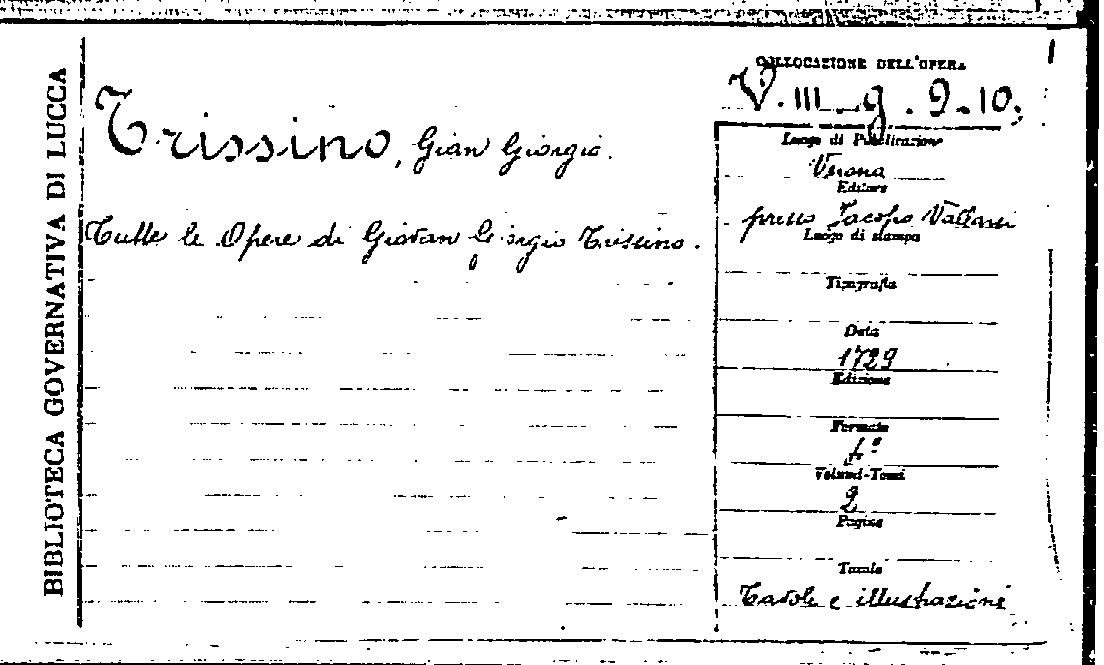 BIBLIOTECA GOVERNATIVA DI LUCCA
COLLOCAZIONE DELL'OPERA
V. III _ g. 9-10;
Trissino, Gian Giorgio.
Tutte le Opere di Giovan Giorgio Trissino.
Luogo di Pubblicazione
Verona
Editore
presso Jacopo Vallarsi
Luogo di stampa
Tipografia
Data
1729
Edizione
Formato
4°
Volumi-Tomi
2
Pagine
Tavole
Tavole e illustrazioni